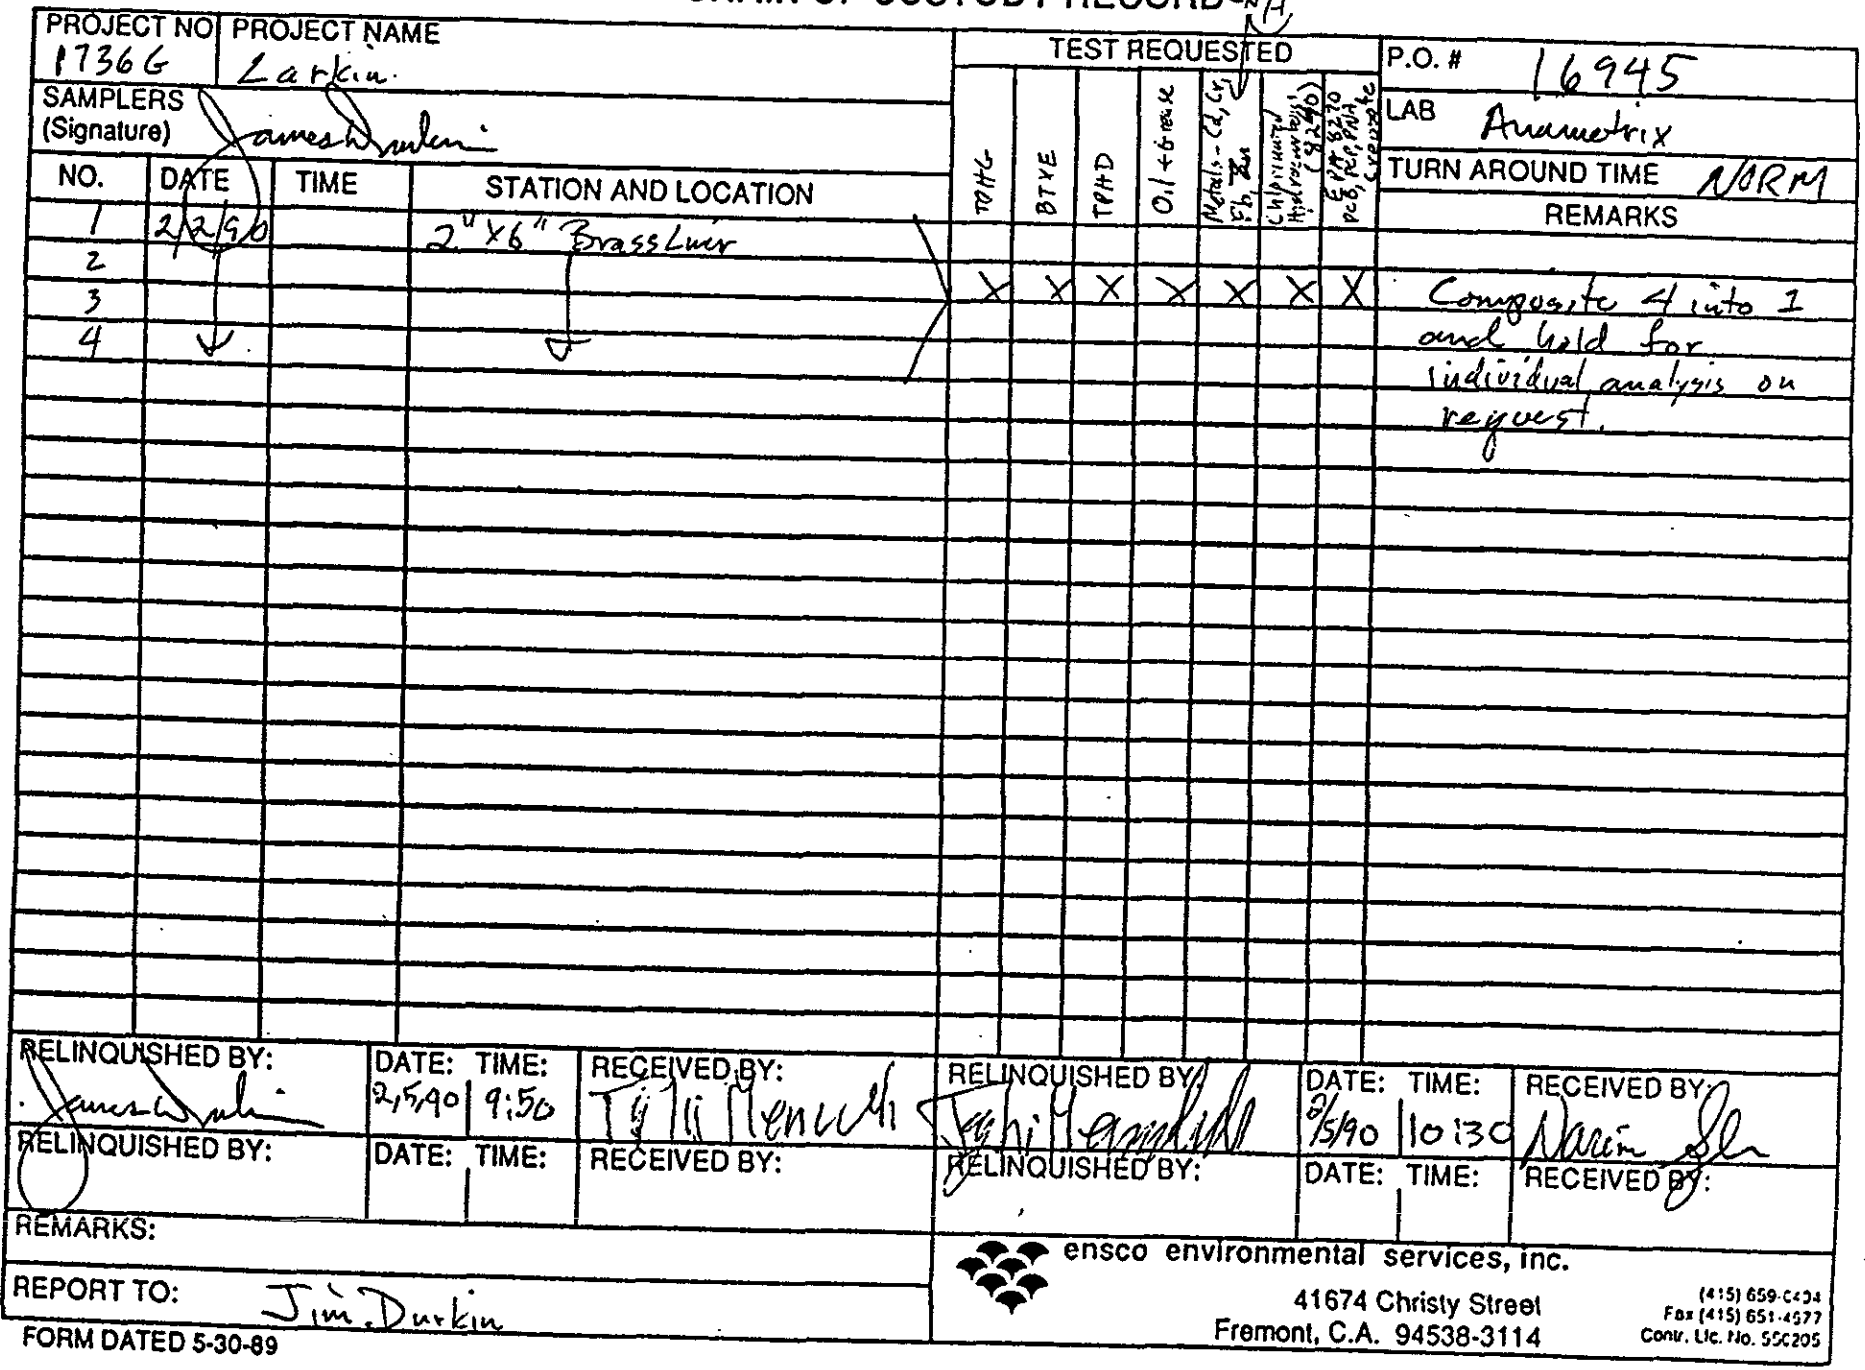 CHAIN OF CUSTODY RECORD
PROJECT NO PROJECT NAME
1736G Larkin.
TEST REQUESTED
P.O. # 16945
SAMPLERS
(Signature) James Durkin
LAB Anametrix
TURN AROUND TIME NORM
NO. DATE TIME STATION AND LOCATION
TPHG
BTXE
TPHD
Oil + Grease
Metals - Cd, Cr,
Pb, Zn
Chlorinated
Hydrocarbons
(8240)
EPA 8270
PCB, PCP, PNA,
Creosote
REMARKS
1 2/2/90 2" X6" Brass Liner
2
3 X X X X X X X
4
Composite 4 into 1
and hold for
individual analysis on
request.
RELINQUISHED BY: DATE: TIME: RECEIVED BY: RELINQUISHED BY: DATE: TIME: RECEIVED BY:
James Durkin 2,5,90 9:50 2/5/90 10:30
RELINQUISHED BY: DATE: TIME: RECEIVED BY: RELINQUISHED BY: DATE: TIME: RECEIVED BY:
REMARKS:
REPORT TO: Jim Durkin
FORM DATED 5-30-89
ensco environmental services, inc.
41674 Christy Street
Fremont, C.A. 94538-3114
(415) 659-0404
Fax (415) 651-4677
Contr. Lic. No. 550205